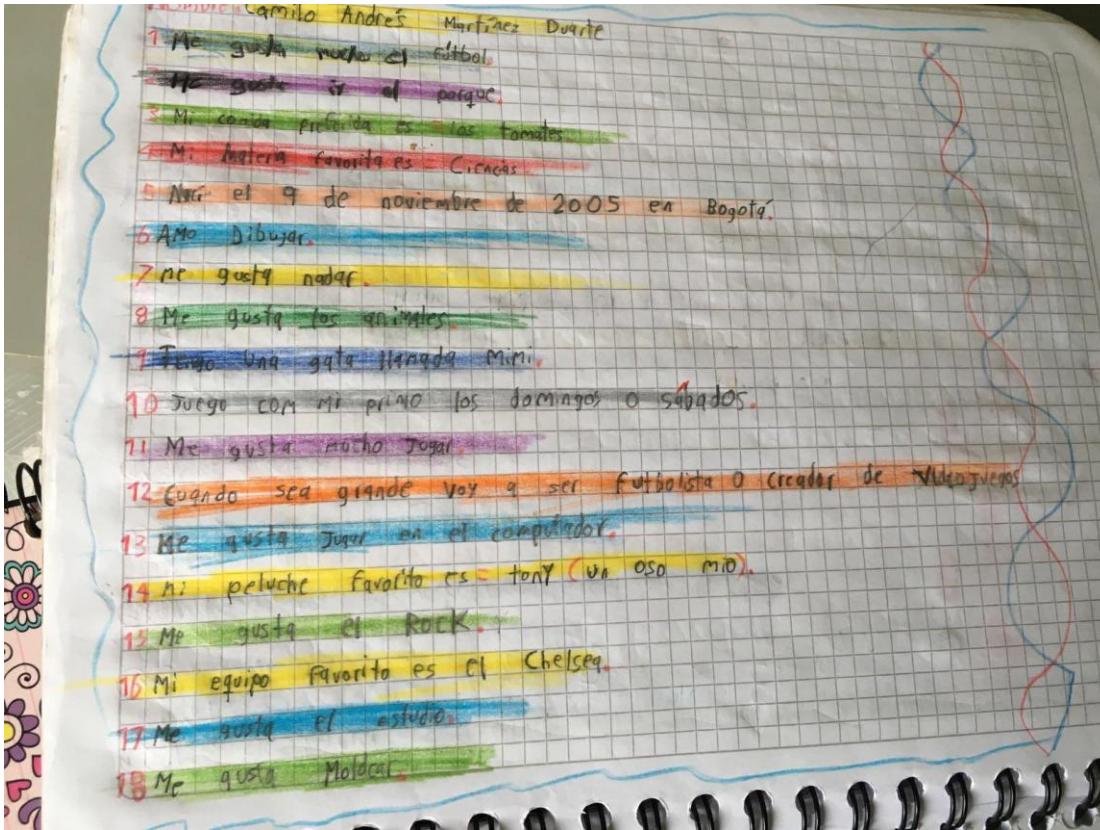 Nombre: Camilo Andrés Martínez Duarte
1 Me gusta mucho el fútbol.
2 Me gusta ir al parque.
3 Mi comida preferida es = los tomates.
4 Mi Materia favorita es = Ciencias.
5 Nací el 9 de noviembre de 2005 en Bogotá.
6 AMo Dibujar.
7 me gusta nadar.
8 Me gusta los animales.
9 Tengo una gata llamada Mimi.
10 Juego com mi primo los domingos o sábados.
11 Me gusta mucho Jugar.
12 Cuando sea grande voy a ser futbolista o creador de Videojuegos
13 Me gusta Jugar en el computador.
14 mi peluche favorito es = tonY (un oso mio).
15 Me gusta el RocK.
16 Mi equipo favorito es el Chelsea.
17 Me gusta el estudio.
18 Me gusta Moldear.